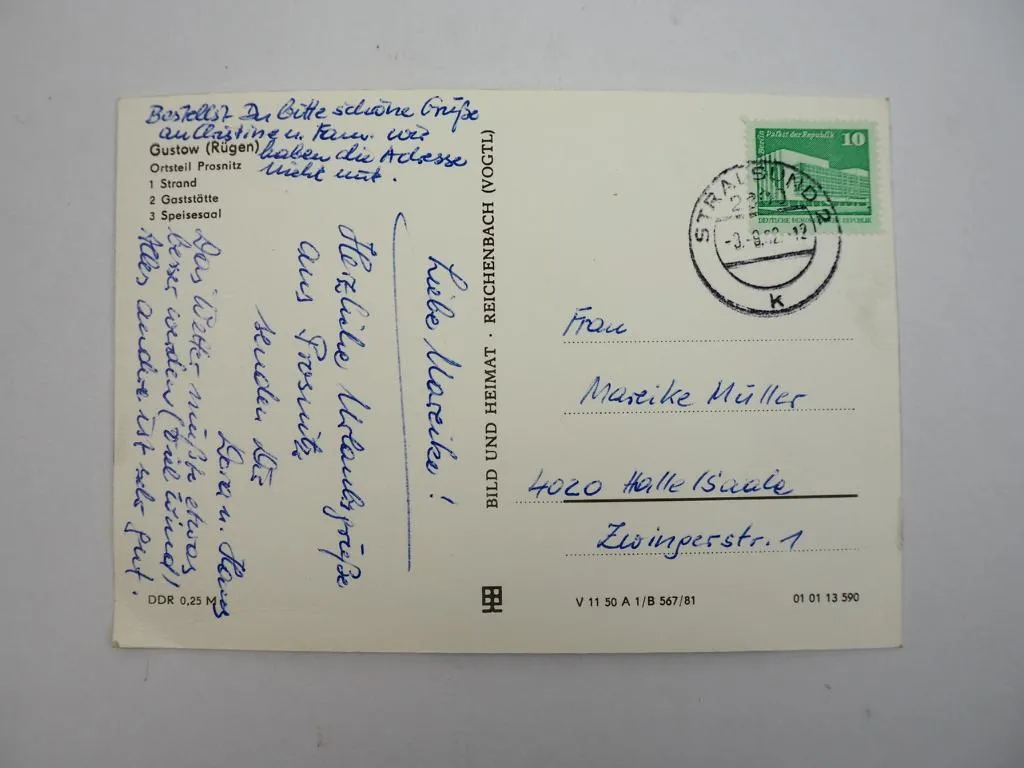 Bestellst Du bitte schöne Grüße
an Christine u. Fam. wir
haben die Adresse
nicht mit.
Gustow (Rügen)
Ortsteil Prosnitz
1 Strand
2 Gaststätte
3 Speisesaal
Liebe Mareike!
Herzliche Urlaubsgrüße
aus Prosnitz
senden Dir
Dora u. Hans
Das Wetter müßte etwas
besser werden (viel Wind)
Alles andre ist sehr gut.
DDR 0,25 M
BILD UND HEIMAT · REICHENBACH (VOGTL)
Berlin Palast der Republik 10
DEUTSCHE DEMOKRATISCHE REPUBLIK
STRALSUND 2
2300
-3.-9.82.-12
k
Frau
Mareike Müller
4020 Halle/Saale
Zwingerstr. 1
V 11 50 A 1/B 567/81
01 01 13 590